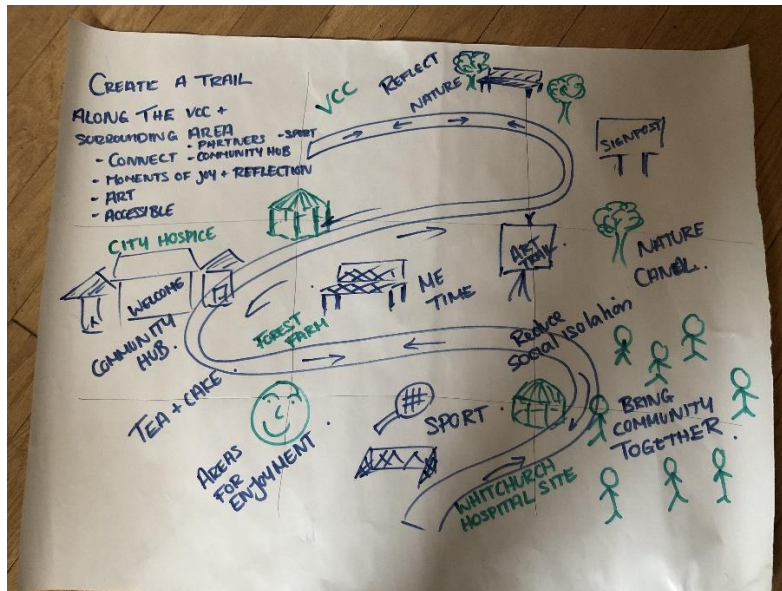 CREATE A TRAIL
ALONG THE VCC +
SURROUNDING AREA
- PARTNERS - SPORT
- CONNECT - COMMUNITY HUB
- MOMENTS OF JOY + REFLECTION
- ART
- ACCESSIBLE
VCC
REFLECT
NATURE
SIGNPOST
CITY HOSPICE
WELCOME
COMMUNITY
HUB.
ME
TIME
ART
TRAIL
NATURE
CANAL.
FOREST
FARM
Reduce
social isolation
TEA + CAKE.
AREAS
FOR
ENJOYMENT
SPORT.
BRING
COMMUNITY
TOGETHER.
WHITCHURCH
HOSPITAL SITE